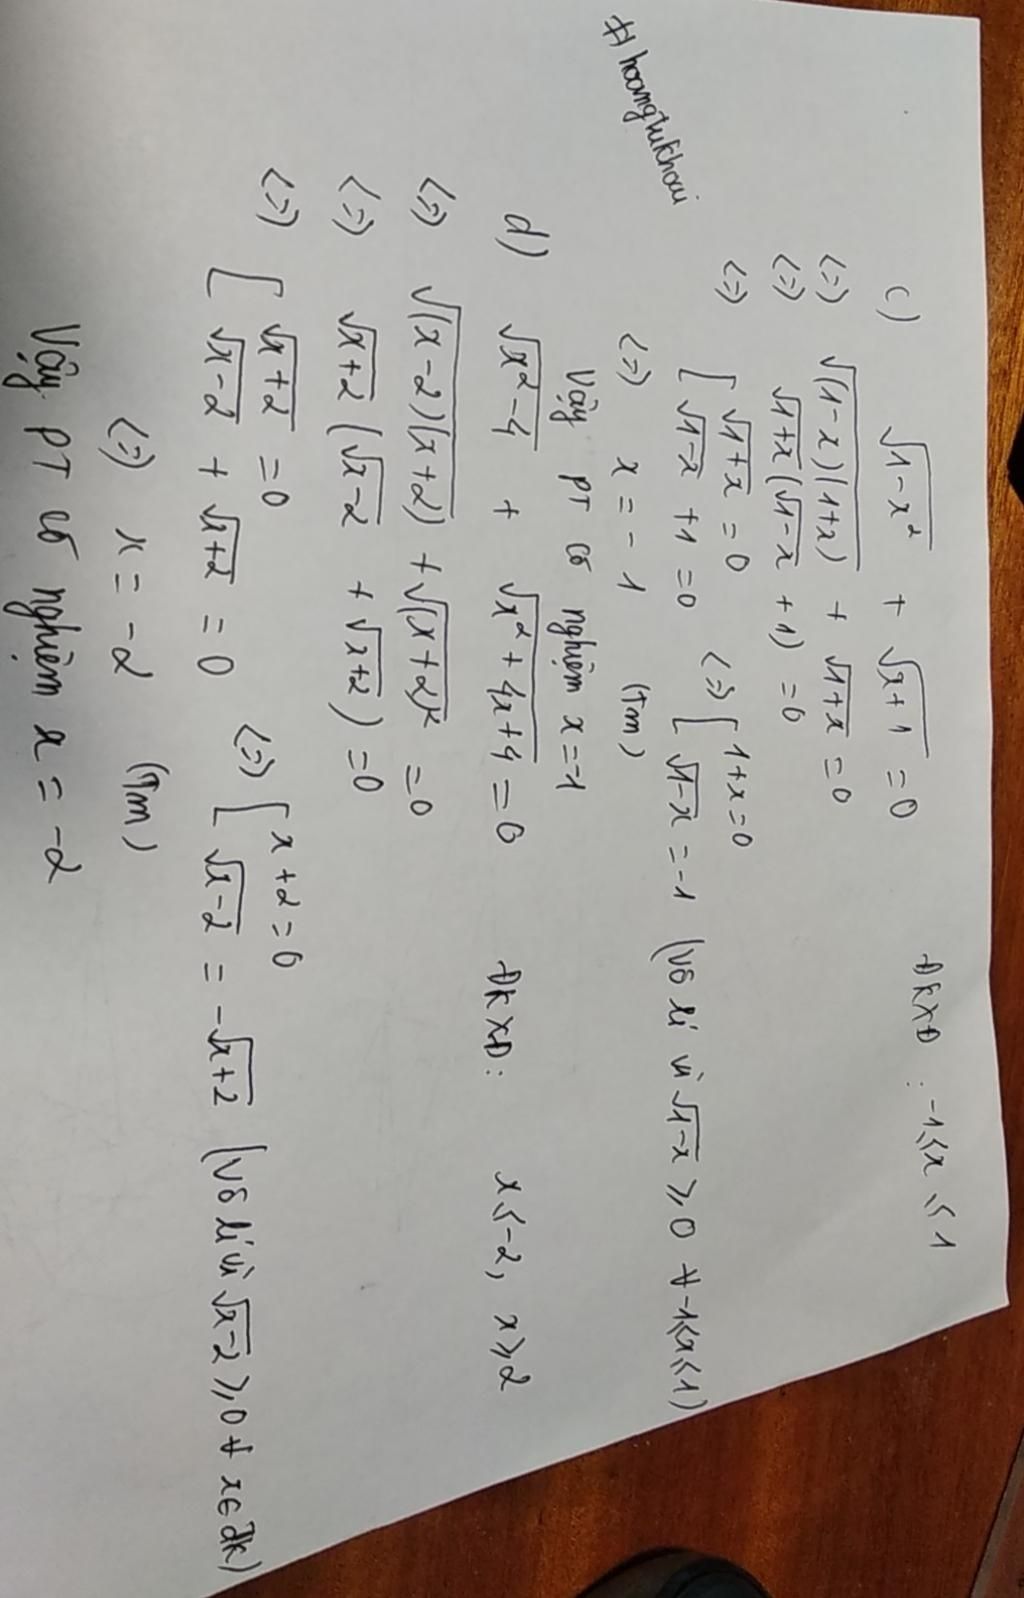 c) √(1-x²) + √(x+1) = 0 ĐKXĐ : -1 ≤ x ≤ 1
<=> √((1-x)(1+x)) + √(1+x) = 0
<=> √(1+x) (√(1-x) + 1) = 0
<=> [ √(1+x) = 0 <=> [ 1+x = 0
√(1-x) + 1 = 0 √(1-x) = -1 (vô lí vì √(1-x) ≥ 0 ∀ -1≤x≤1)
<=> x = -1 (Tm)
#hoangtukhoai
Vậy PT có nghiệm x = -1
d) √(x²-4) + √(x²+4x+4) = 0 ĐKXĐ: x ≤ -2, x ≥ 2
<=> √((x-2)(x+2)) + √((x+2)²) = 0
<=> √(x+2) (√(x-2) + √(x+2)) = 0
<=> [ √(x+2) = 0 <=> [ x+2 = 0
√(x-2) + √(x+2) = 0 √(x-2) = -√(x+2) (vô lí vì √(x-2) ≥ 0 ∀ x ∈ đk)
<=> x = -2 (Tm)
Vậy PT có nghiệm x = -2